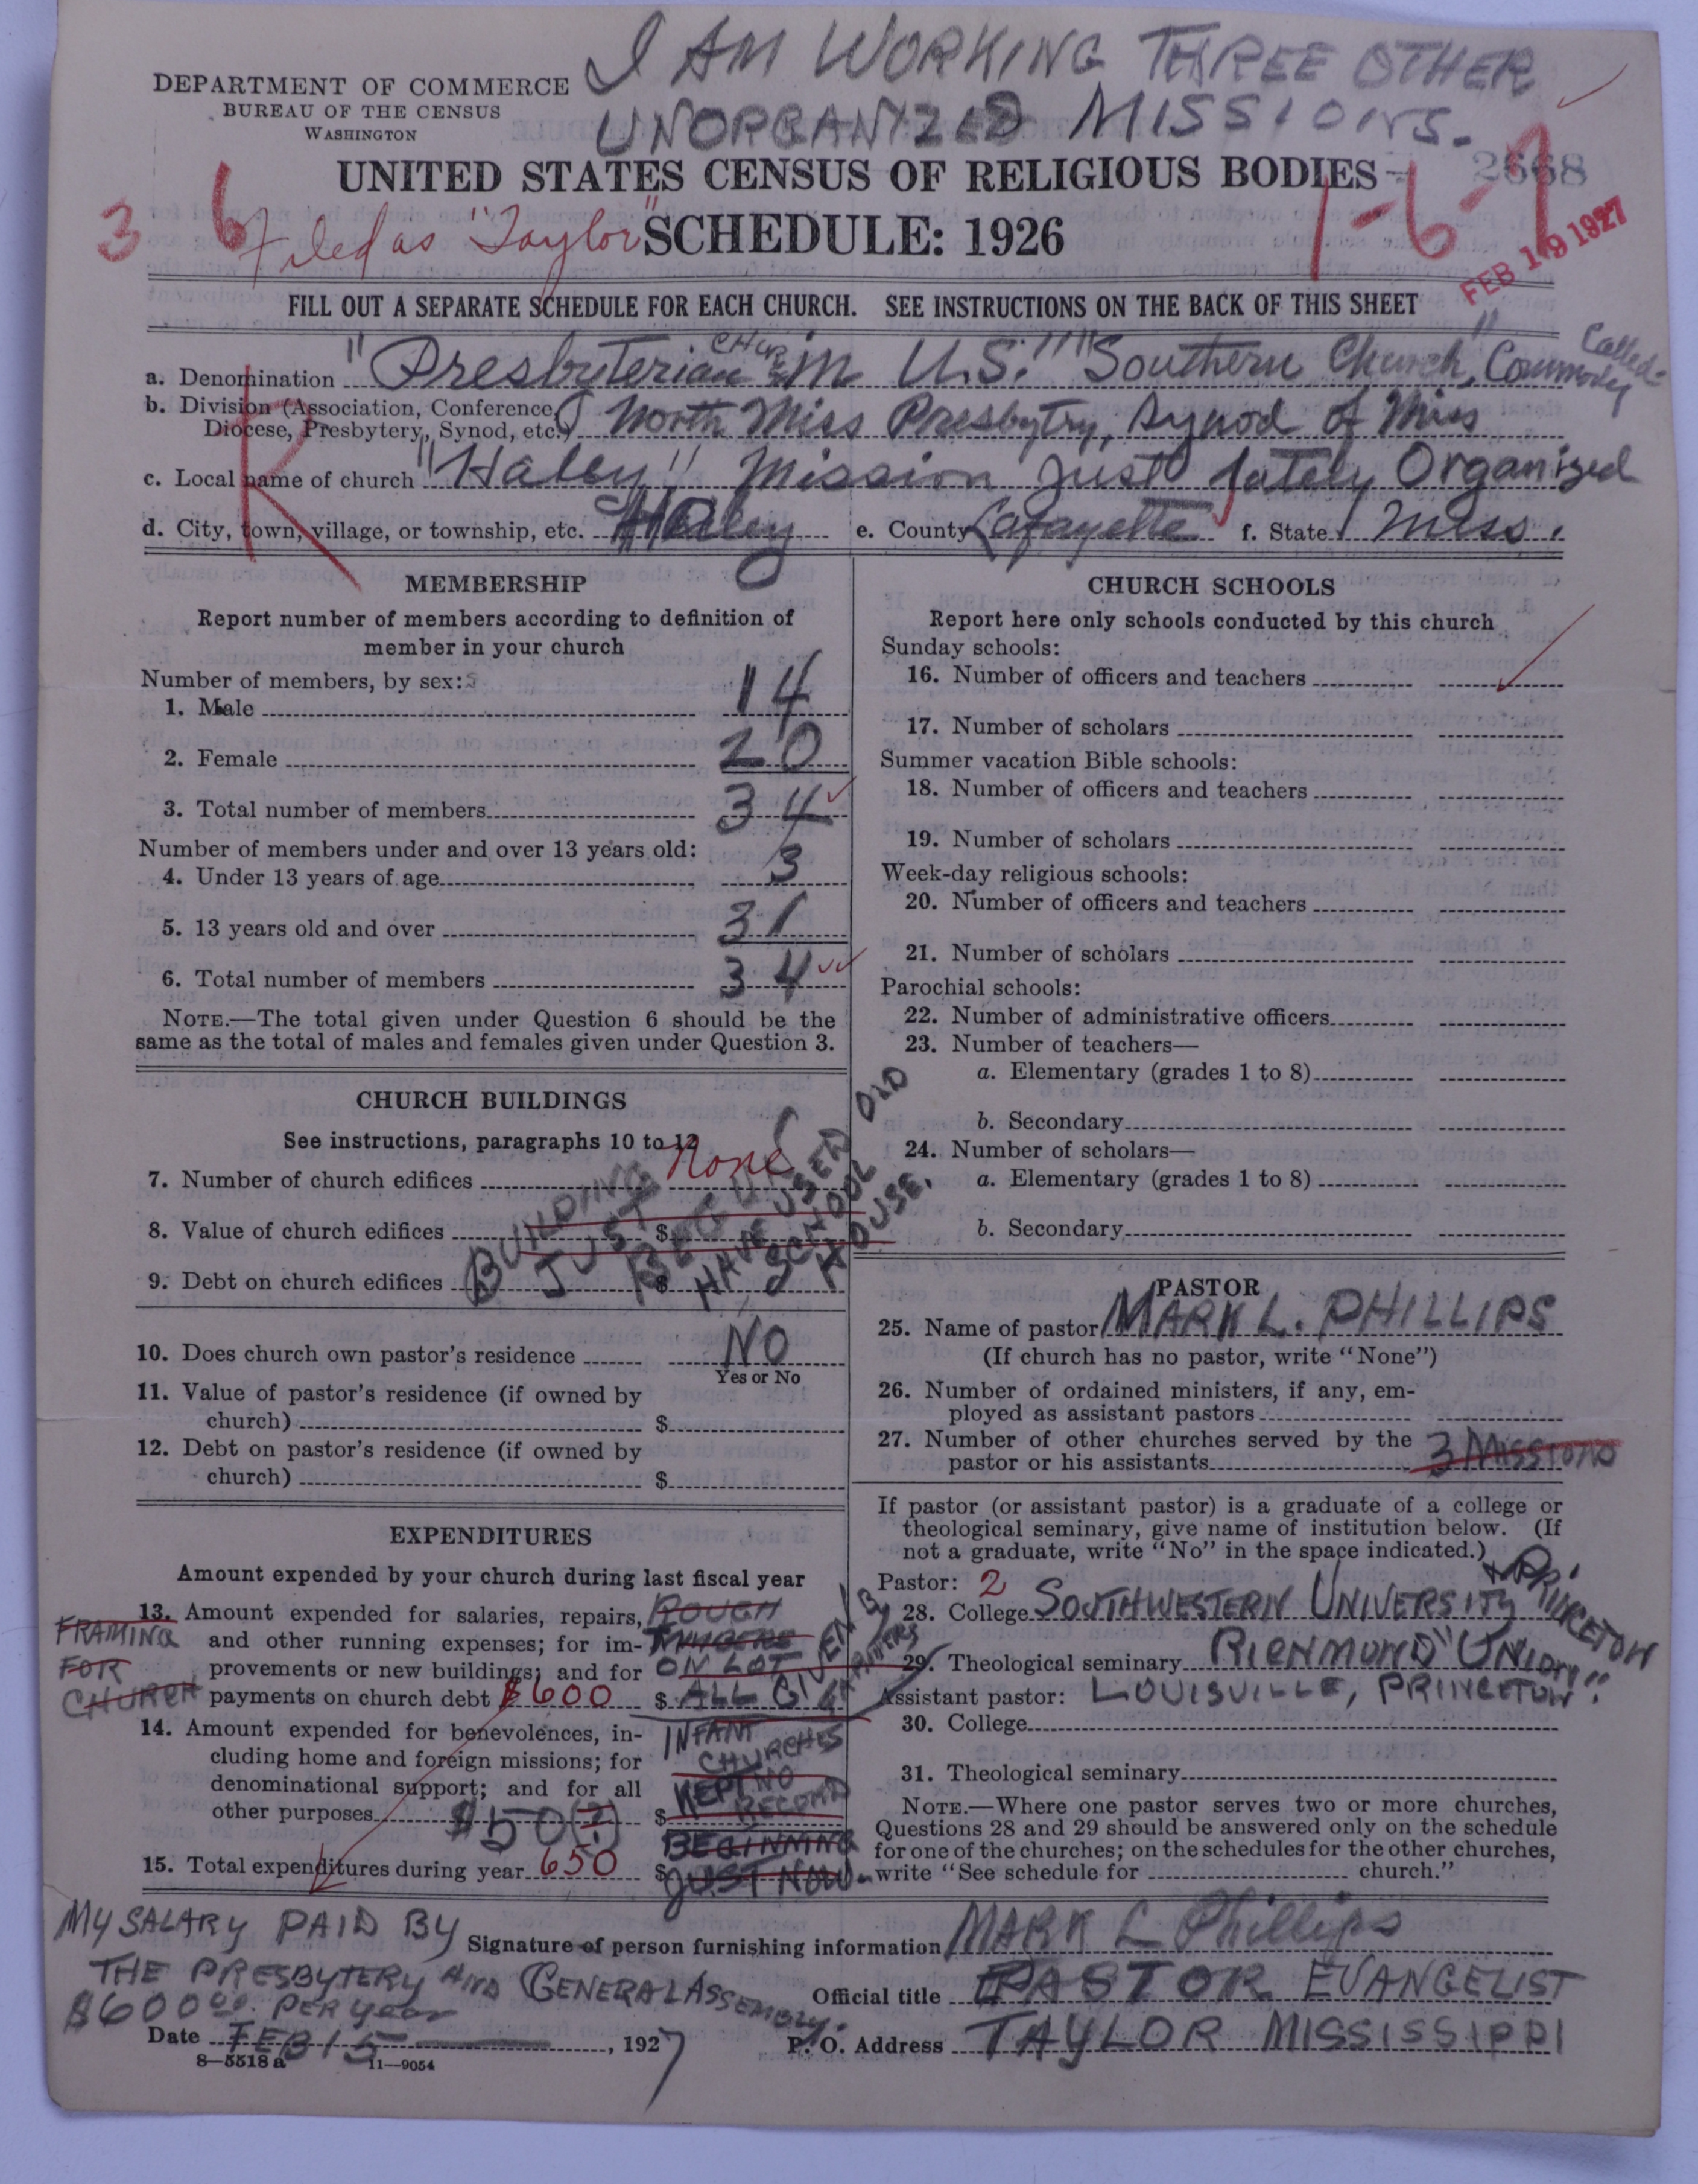 I AM WORKING THREE OTHER
UNORGANIZED MISSIONS.
DEPARTMENT OF COMMERCE
BUREAU OF THE CENSUS
WASHINGTON
UNITED STATES CENSUS OF RELIGIOUS BODIES
2668
1-6-7
3 6 Filed as "Taylor" SCHEDULE: 1926
FEB 19 1927
FILL OUT A SEPARATE SCHEDULE FOR EACH CHURCH. SEE INSTRUCTIONS ON THE BACK OF THIS SHEET
a. Denomination "Presbyterian Church in U.S." "Southern Church," Commonly Called
b. Division (Association, Conference,
Diocese, Presbytery, Synod, etc.) North Miss Presbytry, Synod of Miss
c. Local name of church "Haley" Mission just lately Organized
d. City, town, village, or township, etc. Haley e. County Lafayette f. State Miss.
K
MEMBERSHIP
Report number of members according to definition of
member in your church
Number of members, by sex:
1. Male 14
2. Female 20
3. Total number of members 34
Number of members under and over 13 years old:
4. Under 13 years of age 3
5. 13 years old and over 31
6. Total number of members 34
NOTE.—The total given under Question 6 should be the
same as the total of males and females given under Question 3.
CHURCH BUILDINGS
See instructions, paragraphs 10 to 12
7. Number of church edifices None
8. Value of church edifices $
9. Debt on church edifices $
BUILDING
JUST BEGUN
HAVE USED OLD
SCHOOL
HOUSE.
10. Does church own pastor's residence NO
Yes or No
11. Value of pastor's residence (if owned by
church) $
12. Debt on pastor's residence (if owned by
church) $
EXPENDITURES
Amount expended by your church during last fiscal year
13. Amount expended for salaries, repairs, ROUGH
and other running expenses; for im-
provements or new buildings; and for ON LOT
payments on church debt $600 $ ALL GIVEN BY
FRAMING
FOR
CHURCH
14. Amount expended for benevolences, in-
cluding home and foreign missions; for
denominational support; and for all
other purposes $50(?) $
INFANT
CHURCHES
KEPT NO
RECORD
BEGINNING
15. Total expenditures during year 650 $ JUST NOW
CHURCH SCHOOLS
Report here only schools conducted by this church
Sunday schools:
16. Number of officers and teachers
17. Number of scholars
Summer vacation Bible schools:
18. Number of officers and teachers
19. Number of scholars
Week-day religious schools:
20. Number of officers and teachers
21. Number of scholars
Parochial schools:
22. Number of administrative officers
23. Number of teachers—
a. Elementary (grades 1 to 8)
b. Secondary
24. Number of scholars—
a. Elementary (grades 1 to 8)
b. Secondary
PASTOR
25. Name of pastor MARK L. PHILLIPS
(If church has no pastor, write "None")
26. Number of ordained ministers, if any, em-
ployed as assistant pastors
27. Number of other churches served by the
pastor or his assistants 3 MISSIONS
If pastor (or assistant pastor) is a graduate of a college or
theological seminary, give name of institution below. (If
not a graduate, write "No" in the space indicated.)
Pastor: 2
28. College SOUTHWESTERN UNIVERSITY & PRINCETON
29. Theological seminary RICHMOND "UNION"
Assistant pastor: LOUISVILLE, PRINCETON".
30. College
31. Theological seminary
NOTE.—Where one pastor serves two or more churches,
Questions 28 and 29 should be answered only on the schedule
for one of the churches; on the schedules for the other churches,
write "See schedule for church."
MY SALARY PAID BY
THE PRESBYTERY AND GENERAL ASSEMBLY.
$600 00. PER year
Signature of person furnishing information MARK L Phillips
Official title PASTOR EVANGELIST
Date FEB 15, 1927 P. O. Address TAYLOR MISSISSIPPI
8—5518 a 11—9054